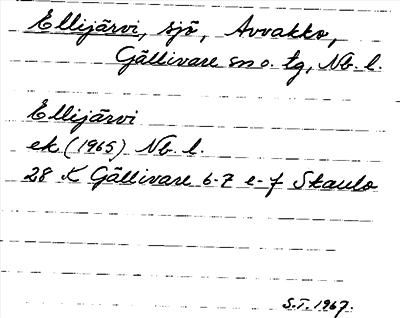 Ellijärvi, sjö, Avvakko,
Gällivare sn o. tg, Nb. l.
Ellijärvi
ek (1965) Nb. l.
28 K Gällivare 6-7 e-f Skaulo
S.T. 1967.